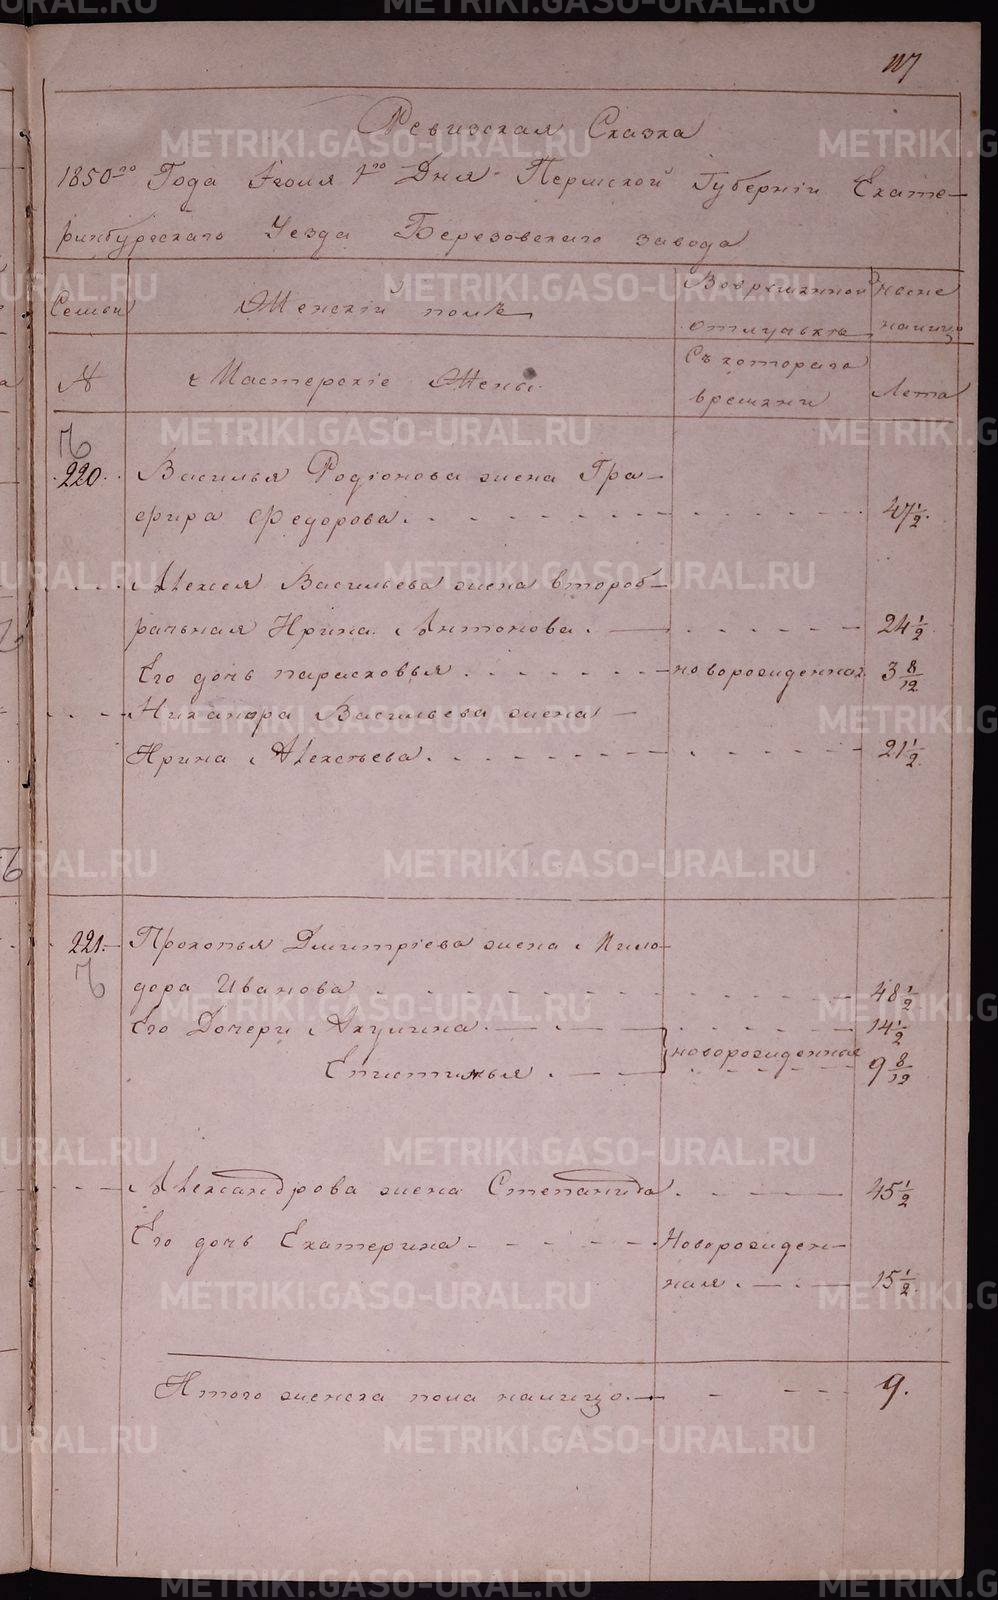 117
Ревизская Сказка
1850го Года Июля 1го Дня Пермской Губернiи Екате-
ринбургскаго Уезда Березовскаго завода
Семьи
Женскiй полъ
Вовременной
отлучкѣ
ныне
налицо
№
Мастерскiе Жены
Съ котораго
времени
Лета
220.
Василья Родiонова жена Гра-
фира Федорова.
47 1/2.
Алексея Васильева жена второб-
рачьная Ирина Антонова.
24 1/2
Его дочь парасковья
новорожденная
3 8/12
Никанора Васильева жена
Ирина Алексѣева.
21 1/2
221.
Прокопья Дмитрiева жена Мило-
дора Иванова
48 1/2
Его Дочери Акулина
14 1/2
новорожденные
Епистимья
9 8/12
Александрова жена Степанида
45 1/2
Его дочь Екатерина
Новорожден-
ная
15 1/2
Итого женска пола налицо.
9.
METRIKI.GASO-URAL.RU